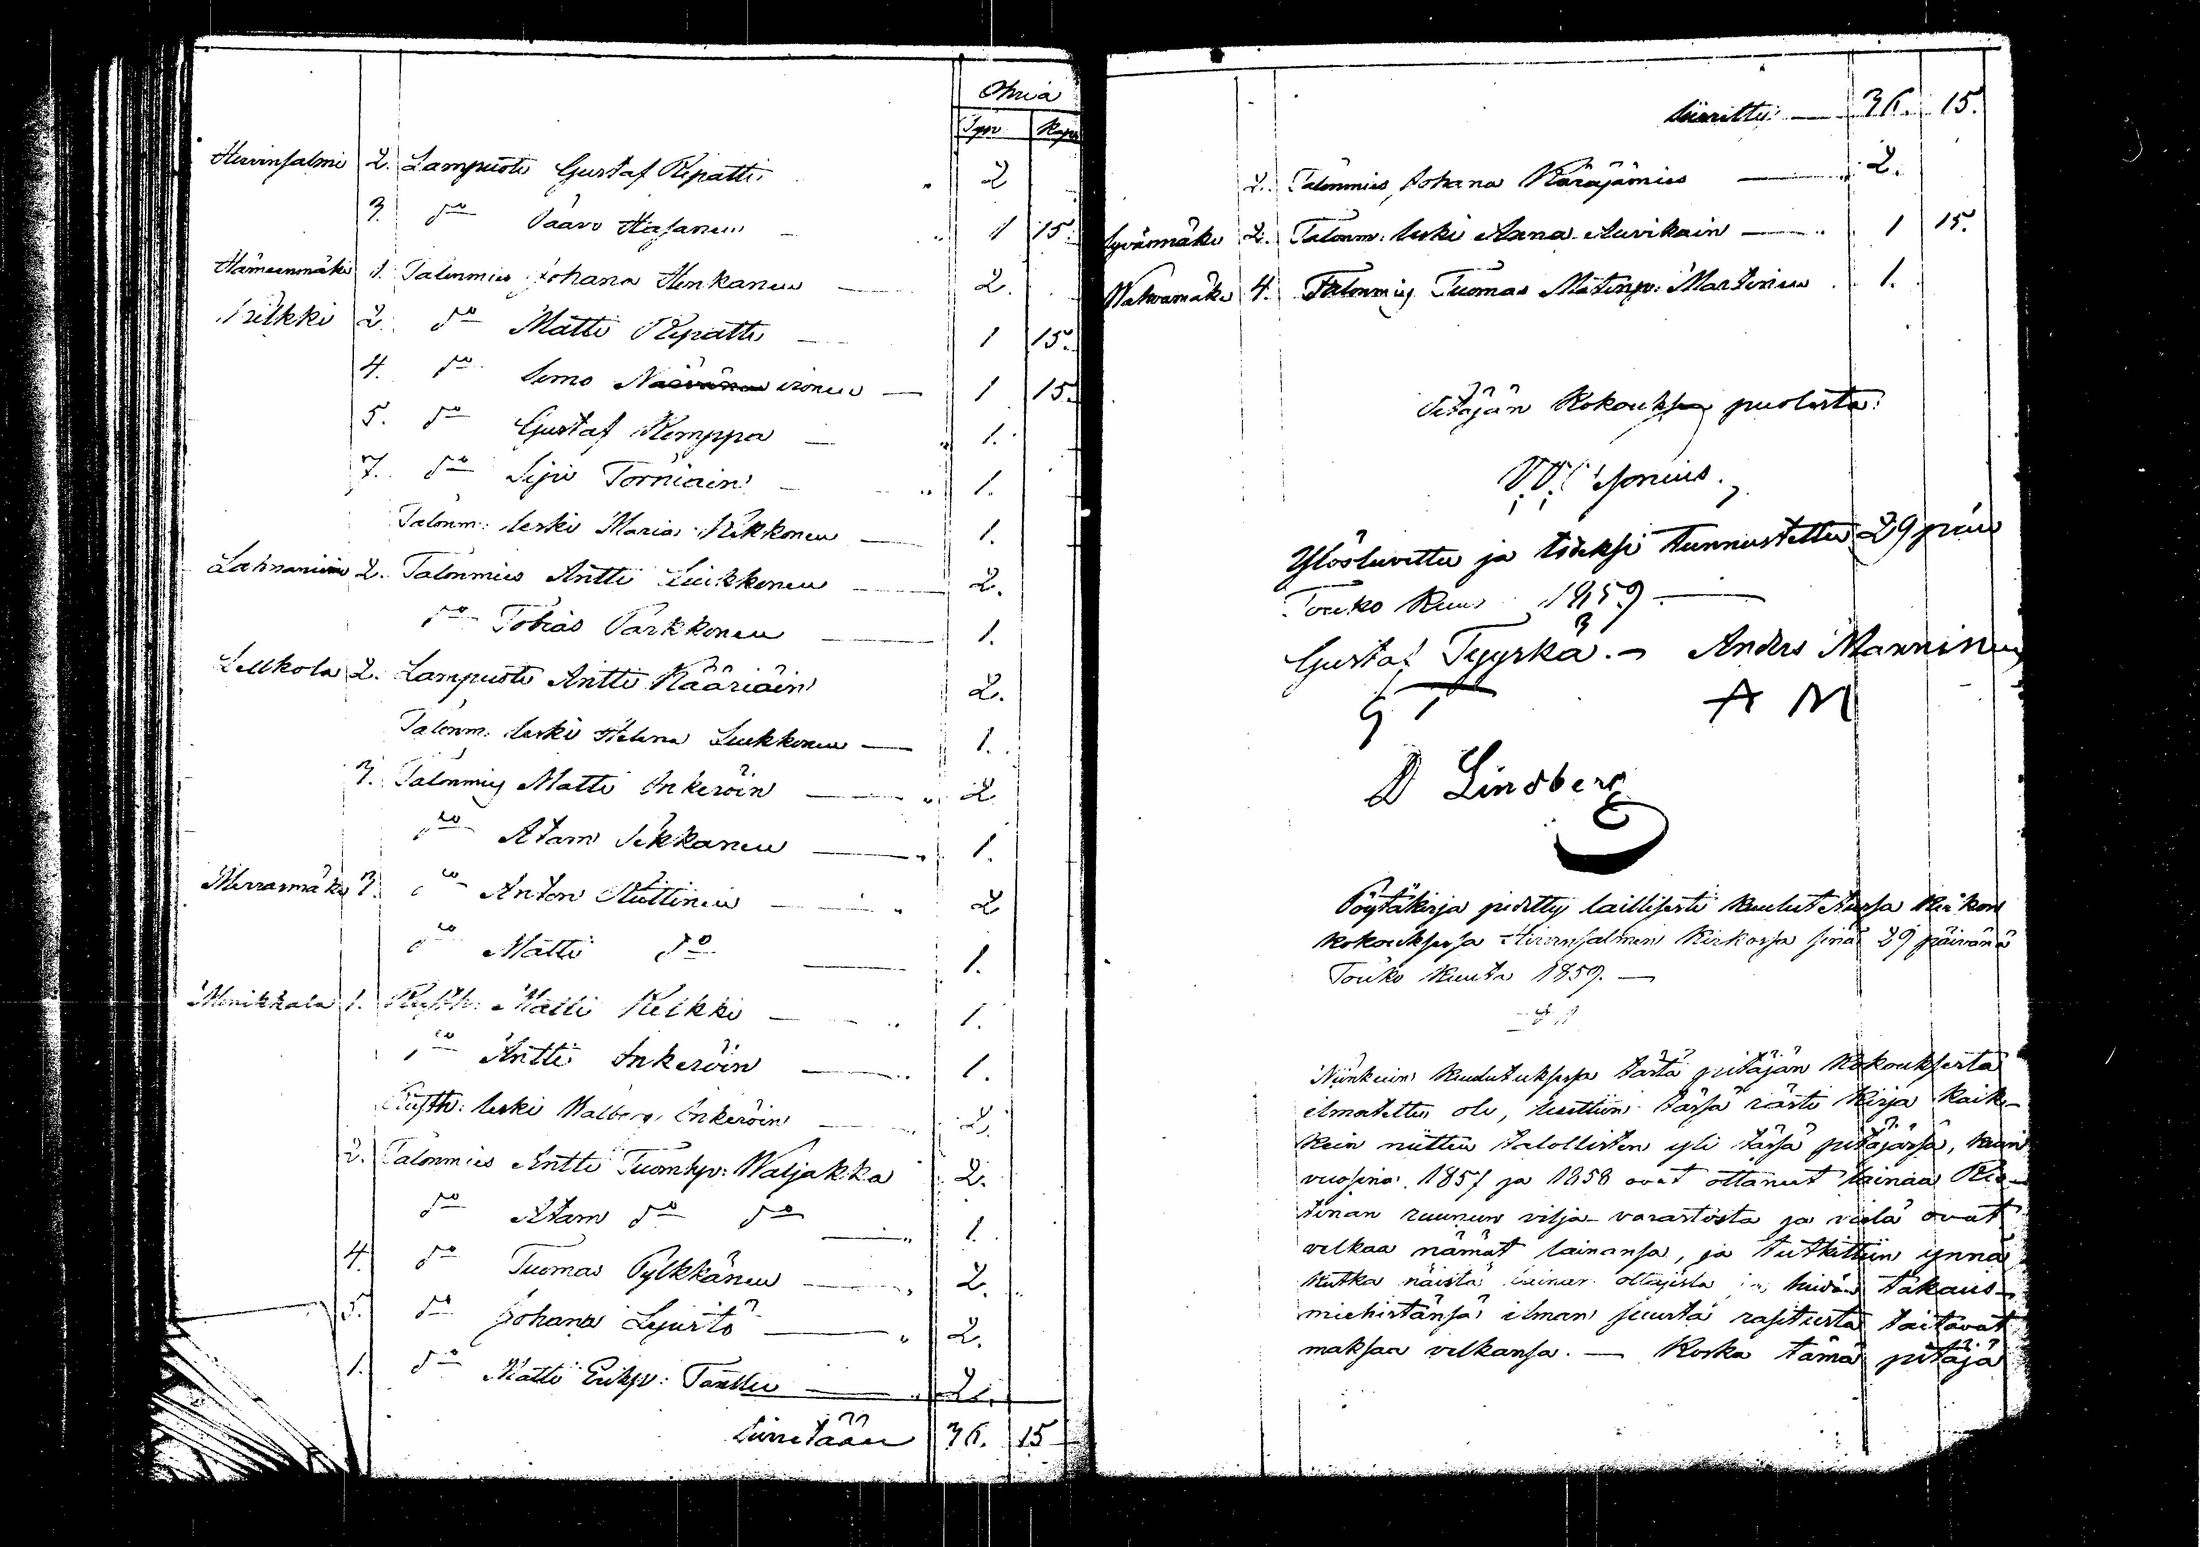 Ohria
Tynr Kapp
Hirvensalmi 2. Lampuoti Gustaf Ripatti 2
3. do Paavo Hasanen 1 15.
Hämeenmäki 1. Talonmies Johana Henkanen 2.
Kilkki 2. do Matti Ripatti 1 15.
4. do Simo 1 15.
5. do Gustaf Kemppa 1.
7. do Sipi Torniain 1.
Talonm: leski Maria Kikkonen 1.
Lahnaniemi 2. Talonmies Antti Liukkonen 2.
do Tobias Parkkonen 1.
Lelkola 2. Lampuoti Antti Kääriäin 2.
Talonm. leski Helena Liukkonen 1.
3. Talonmies Matti Inkeröin 2
do Atam Sikkanen 1.
Merrasmäki 3. do Anton Sluttinen 2
do Matti do 1.
Monikkala 1. Rusth: Matti Kelkki 1.
do Antti Inkeröin 1.
Rusth: leski Walborg Inkeröin 2.
2. Talonmies Antti Tuomhp: Waljakka 2.
do Atam do do 1.
4. do Tuomas Pylkkänen 2.
5. do Johana Lyyristö 2.
1. do Matti Erikp: Tanttu 2.
Siirretään 36. 15
Siirretty 36. 15.
2. Talonmies Johana Käräjämies 2.
Syvänmäki 2. Talonm: leski Anna Auvikain 1 15.
Wahvamäki 4. Talonmies Tuomas Matinp: Martinen 1.
Pitäjän Kokouksen puolesta:
Ylösluvettu ja todeksi tunnustettu 29 päiv
Touko Kuus 1859
Gustaf Tyyskä. Anders Manninen
G T A M
D Lindberg
Pöytäkirja pidetty laillisesti kuulutetussa Kirkon
kokouksessa Hirvensalmen Kirkossa sinä 29 päivänä
Touko Kuuta 1859.
§ 1
Niinkuin kuulutuksessa tästä pitäjän Kokouksesta
ilmotettu oli, luettiin tässä rästi Kirja kaik-
kein niitten talollisten yli tässä pitäjässä, kuin
vuosina 1857 ja 1858 ovat ottanut lainaa Ris-
tinan ruunun vilja-varastosta ja vielä ovat
velkaa nämät lainansa, ja tutkittiin ynnä
kutka näistä lainan ottajista ja heidän takaus-
miehistänsä ilman suurta rasitusta taitavat
maksaa velkansa. — Koska tämä pitäjä